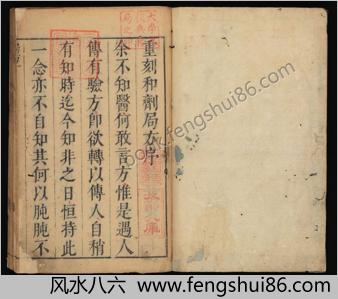 重刻和劑局方序
余不知醫何敢言方惟是遇人
傳有驗方卽欲轉以傳人自稍
有知時迄今知非之日恒持此
一念亦不自知其何以肫肫不
book.fengshui86.com
风水八六 www.fengshui86.com